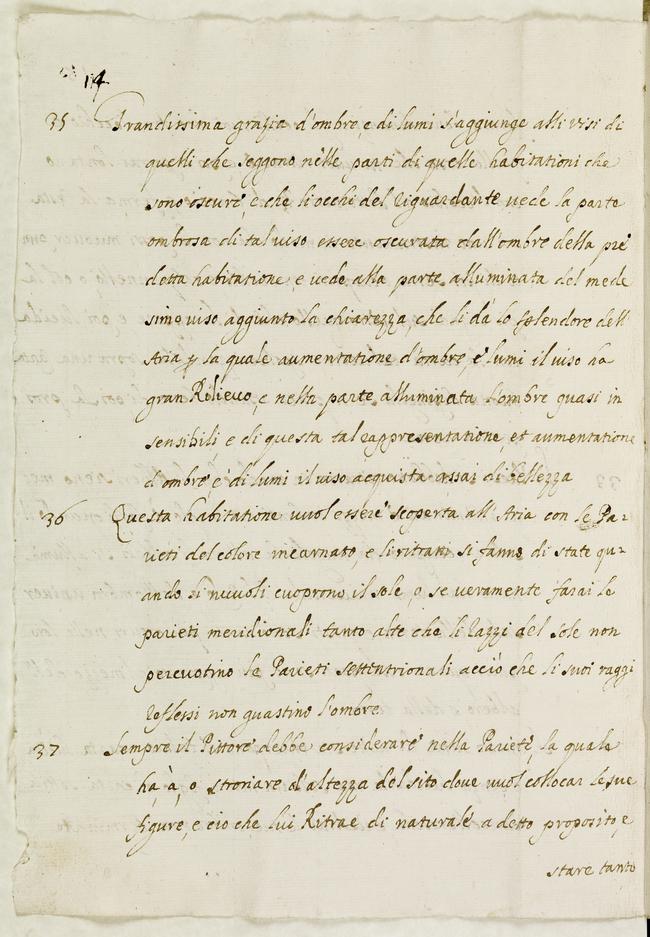 14
35 Grandissima grazia d'ombre, e di lumi s'aggiunge alli visi di
quelli che seggono nelle parti di quelle habitationi che
sono oscure, e che li occhi del riguardante vede la parte
ombrosa di tal viso essere oscurata dall'ombre della pre
detta habitatione, e vede alla parte alluminata del mede
simo viso aggiunto la chiarezza, che li dà lo splendore dell'
Aria p la quale aumentatione d'ombre, e lumi il viso ha
gran Rilievo, e nella parte alluminata l'ombre quasi in
sensibili, e di questa tal rappresentatione, et aumentatione
d'ombre, e di lumi il viso acquista assai di bellezza
36 Questa habitatione vuol essere scoperta all'Aria con le Pa-
rieti del colore incarnato, e li ritratti si fanno di state qu-
ando li nuvoli cuoprono il sole, o se veramente farai le
parieti meridionali tanto alte che li Razzi del Sole non
percuotino le Parieti settentrionali acciò che li suoi raggi
reflessi non guastino l'ombre
37 Sempre il Pittore debbe considerare nella Pariete, la quale
ha, à, o storiare d'altezza del sito dove vuol collocar le sue
figure, e cio che lui Ritrae di naturale a detto proposito, e
stare tanto